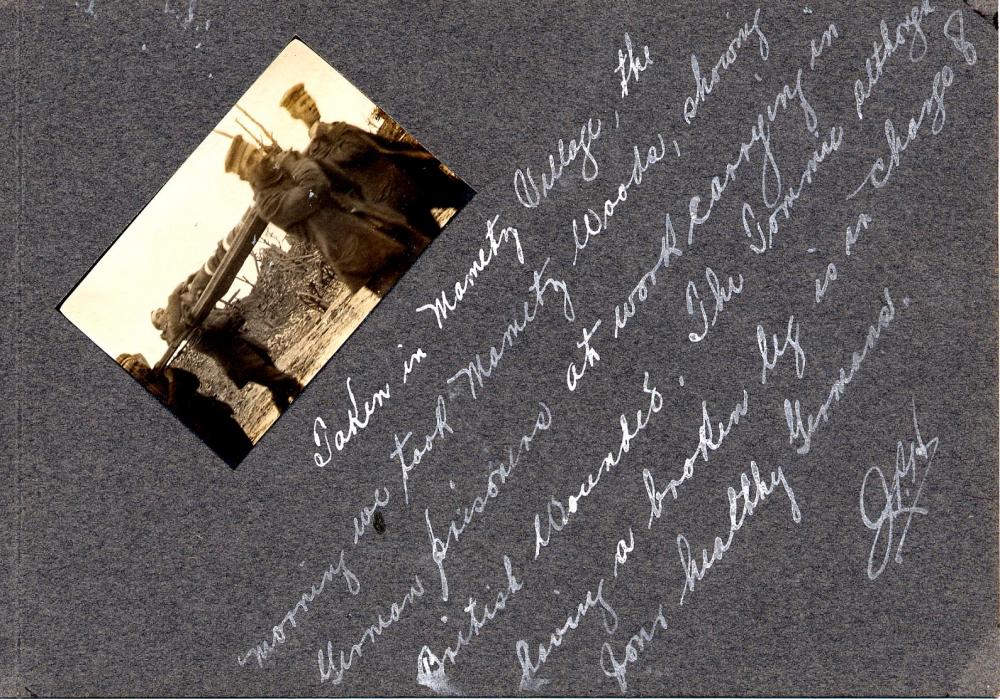 Taken in Mametz Village, the
morning we took Mametz Woods, showing
German prisoners at work carrying in
British Wounded. The Tommie although
having a broken leg is in charge of
four healthy Germans.